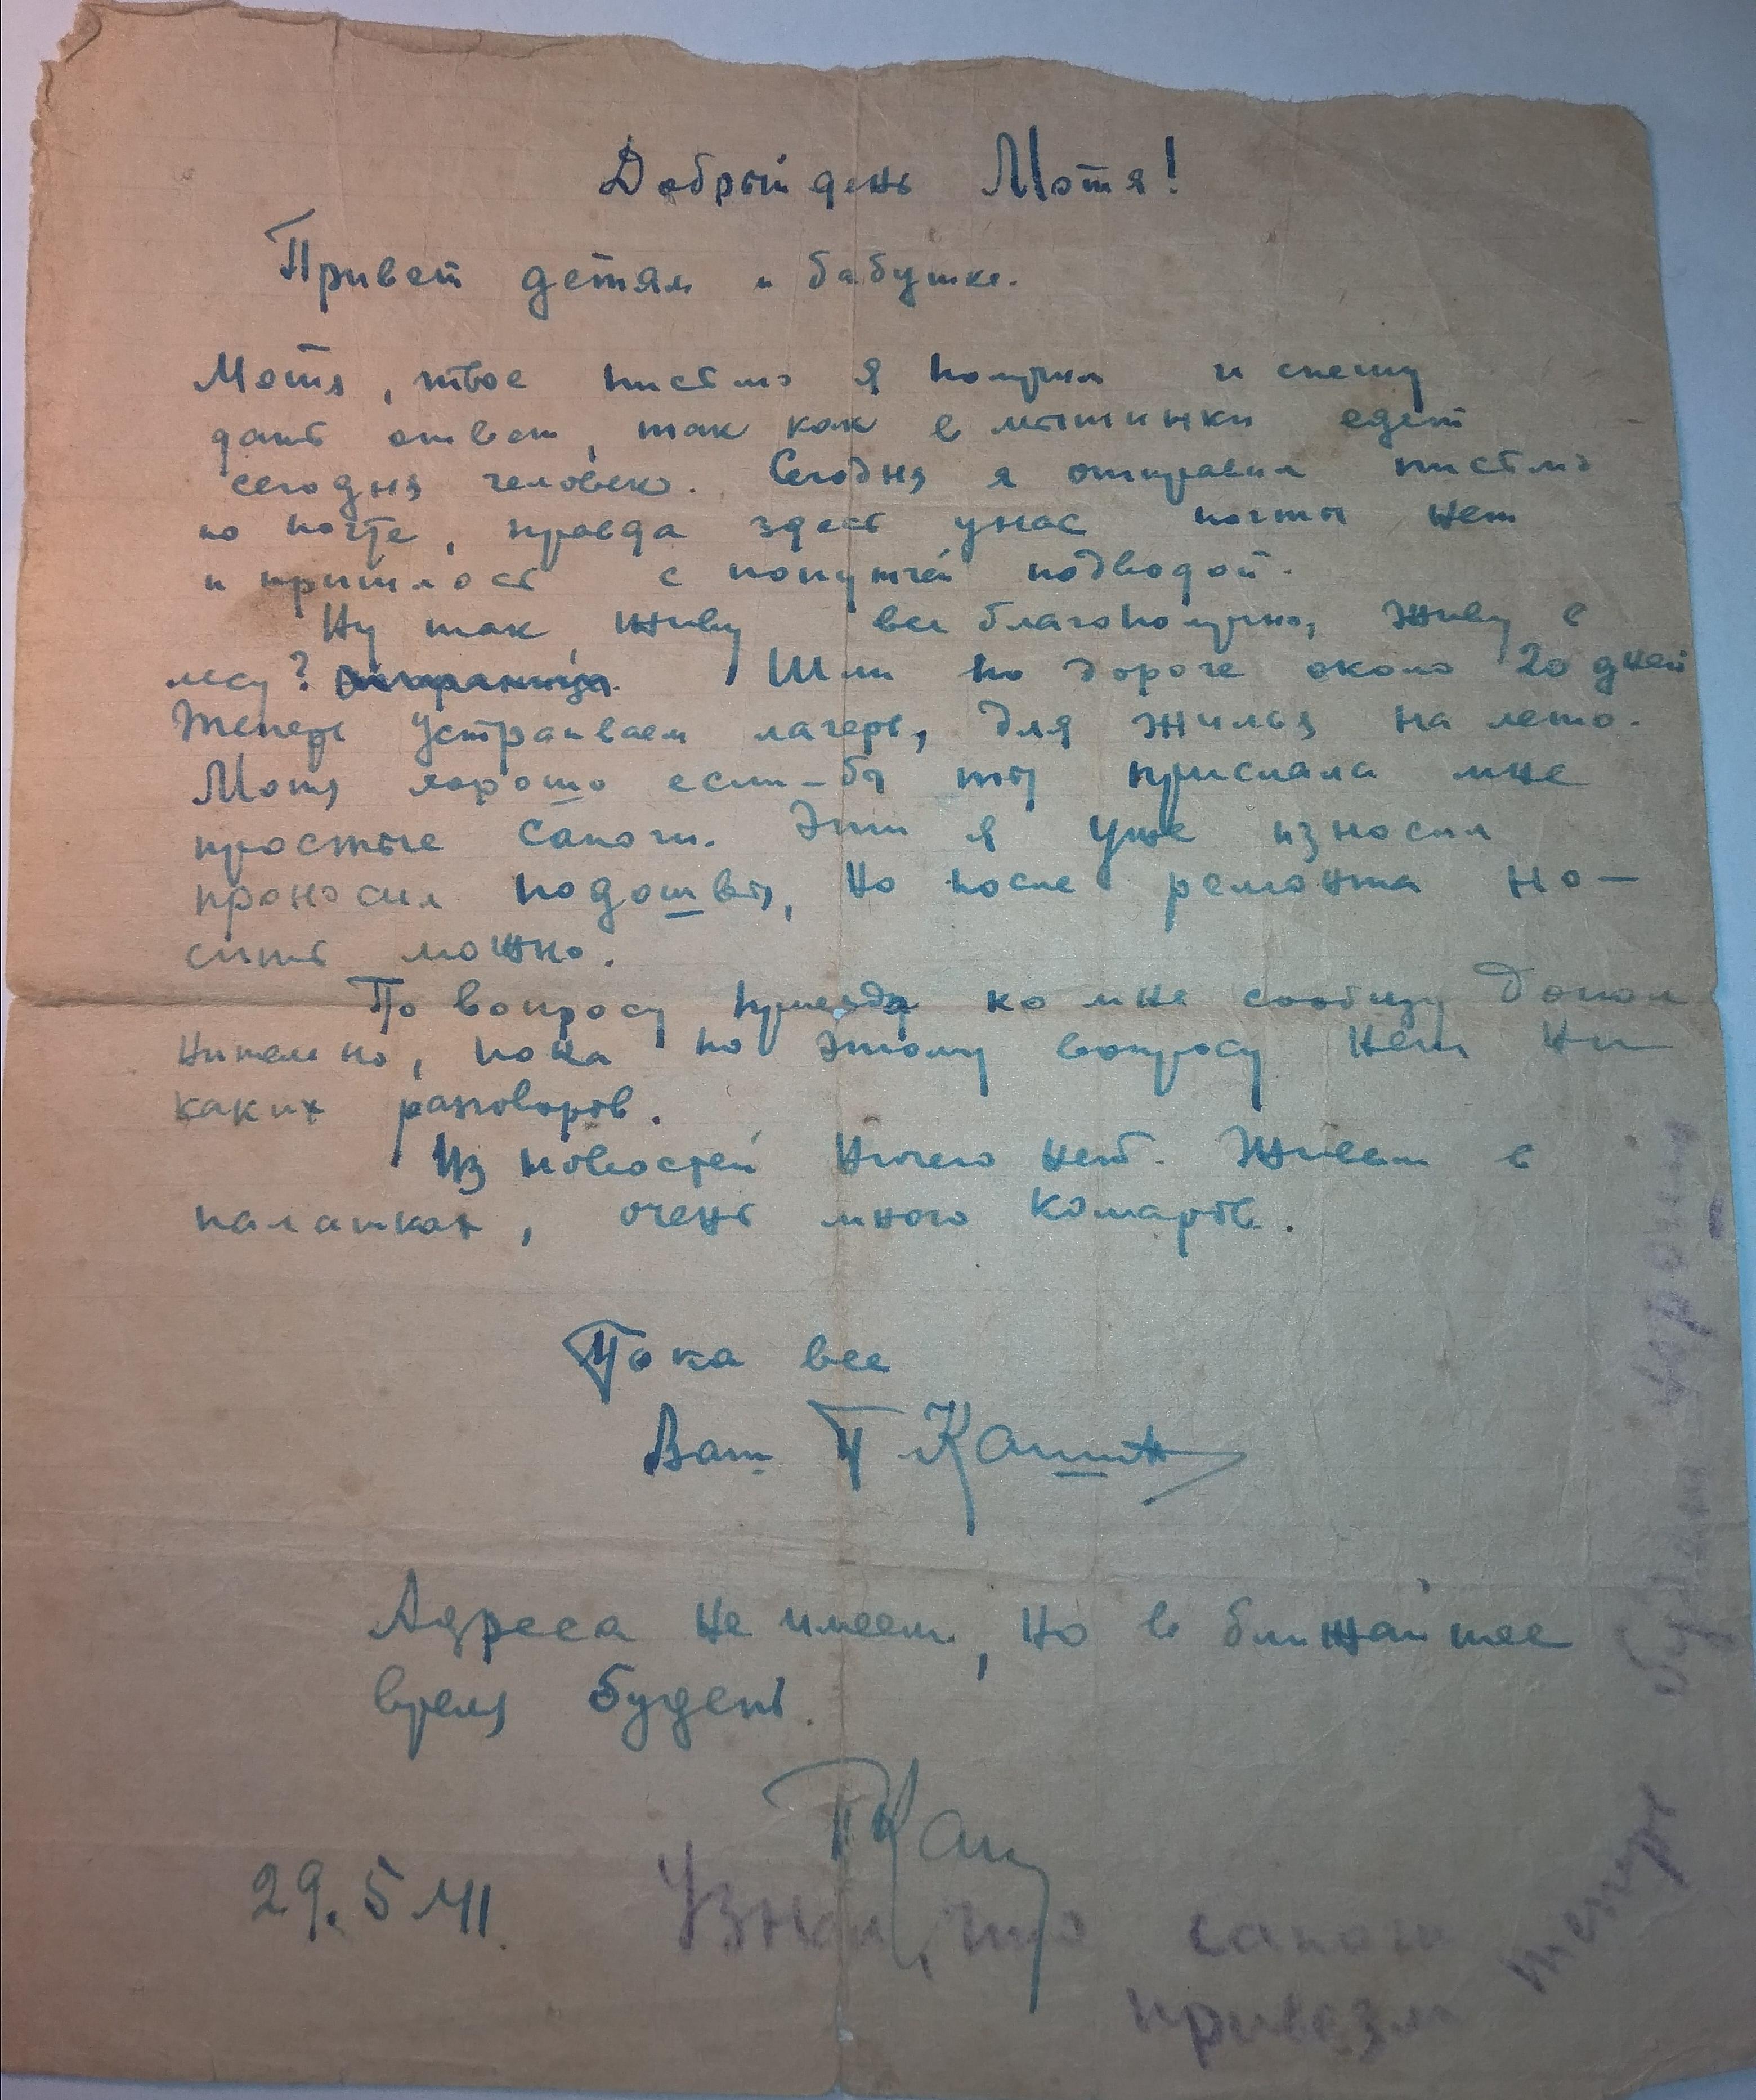 Добрый день Мотя!
Привет детям и бабушке.
Мотя, твое письмо я получил и спешу
дать ответ, так как в мытинки едет
сегодня человек. Сегодня я отправил письмо
по почте, правда здесь унас почты нет
и пришлось с попутчей подводой.
Ну так живу все благополучно, живу в
лесу? Шли по дороге около 20 дней
Теперь устраиваем лагерь, для жилья на лето.
Мотя хорошо если-бы ты прислала мне
простые сапоги. Эти я уже износил
проносил подошвы, но после ремонта но-
сить можно.
По вопросу приезда ко мне сообщу допол
нительно, пока по этому вопросу нет ни
каких разговоров.
Из новостей ничего нет. Живем в
палатках, очень много комаров.
Пока все
Ваш П Кашин
Адреса не имеем, но в ближайшее
время будет.
ПКаш
29. 5 41.
Узнал, что сапоги
привезли
теперь
будем